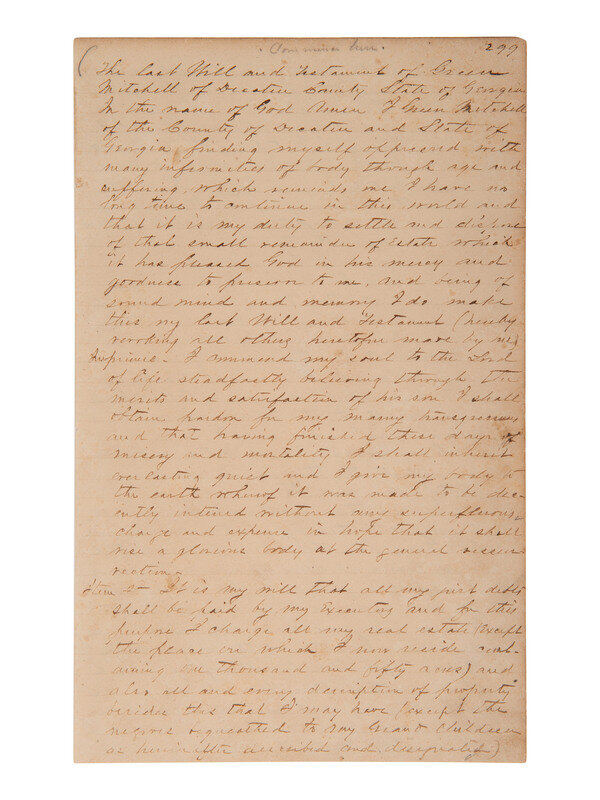 299
The last Will and Testament of Green
Mitchell of Decatur County State of Georgia
In the name of God Amen I Green Mitchell
of the County of Decatur and State of
Georgia finding myself oppressed with
many infirmities of body through age and
suffering which reminds me I have no
long time to continue in this world and
that it is my duty to settle and dispose
of that small remainder of estate which
it has pleased God in his mercy and
goodness to preserve to me, and being of
sound mind and memory I do make
this my last Will and Testament (hereby
revoking all others heretofore made by me)
Imprimis. I commend my soul to the Lord
of life steadfastly believing through the
merits and satisfaction of his son I shall
obtain pardon for my many transgressions
and that having finished these days of
misery and mortality I shall inherit
everlasting quiet and I give my body to
the earth whereof it was made to be dec-
ently intered without any superfluous
charge and expense in hope that it shall
rise a glorious body at the general resur-
rection-
Item 2nd It is my will that all my just debts
shall be paid by my Executors and for this
purpose I charge all my real estate (Except
the place on which I now reside cont-
aining one thousand and fifty acres) and
also all and every description of property
besides this that I may have (except the
negroes bequeathed to my Grand children
as hereinafter described and designated)